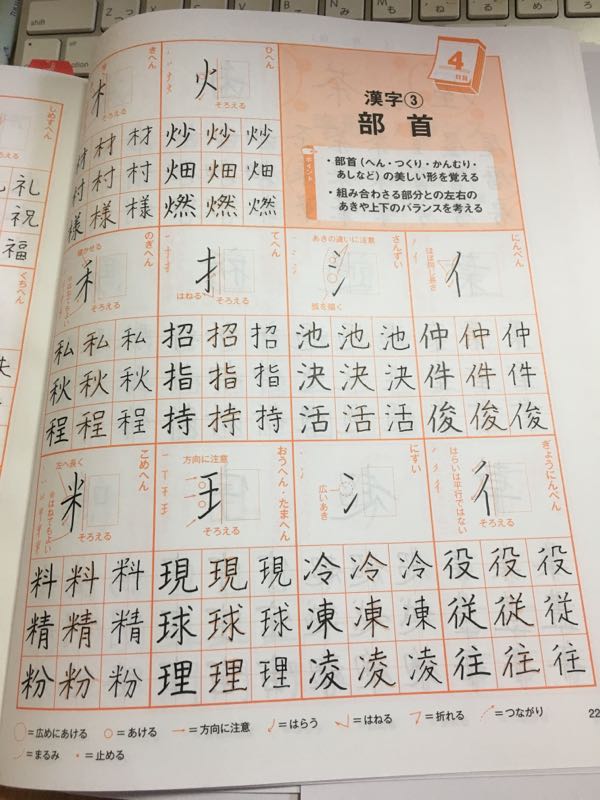 4
日目
漢字③
部首
ポイント
・部首（へん・つくり・かんむり・
あしなど）の美しい形を覚える
・組み合わさる部分との左右の
あきや上下のバランスを考える
ひへん
火
そろえる
炒炒炒
畑畑畑
燃燃燃
きへん
そろえる
材材材
村村村
様様様
しめすへん
礼
祝
福
にんべん
ほぼ同じ長さ
亻
仲仲仲
件件件
俊俊俊
さんずい
あきの違いに注意
氵
弧を描く
池池池
決決決
活活活
てへん
扌
はねる
そろえる
招招招
指指指
持持持
のぎへん
禾
そろえる
私私私
秋秋秋
程程程
くちへん
ぎょうにんべん
はらいは平行ではない
彳
そろえる
役役役
従従従
往往往
にすい
冫
広いあき
冷冷冷
凍凍凍
凌凌凌
おうへん・たまへん
方向に注意
王
そろえる
現現現
球球球
理理理
こめへん
左へ長く
米
※はねてもよい
そろえる
料料料
精精精
粉粉粉
=広めにあける
=あける
=方向に注意
=はらう
=はねる
=折れる
=つながり
=まるみ
=止める
22